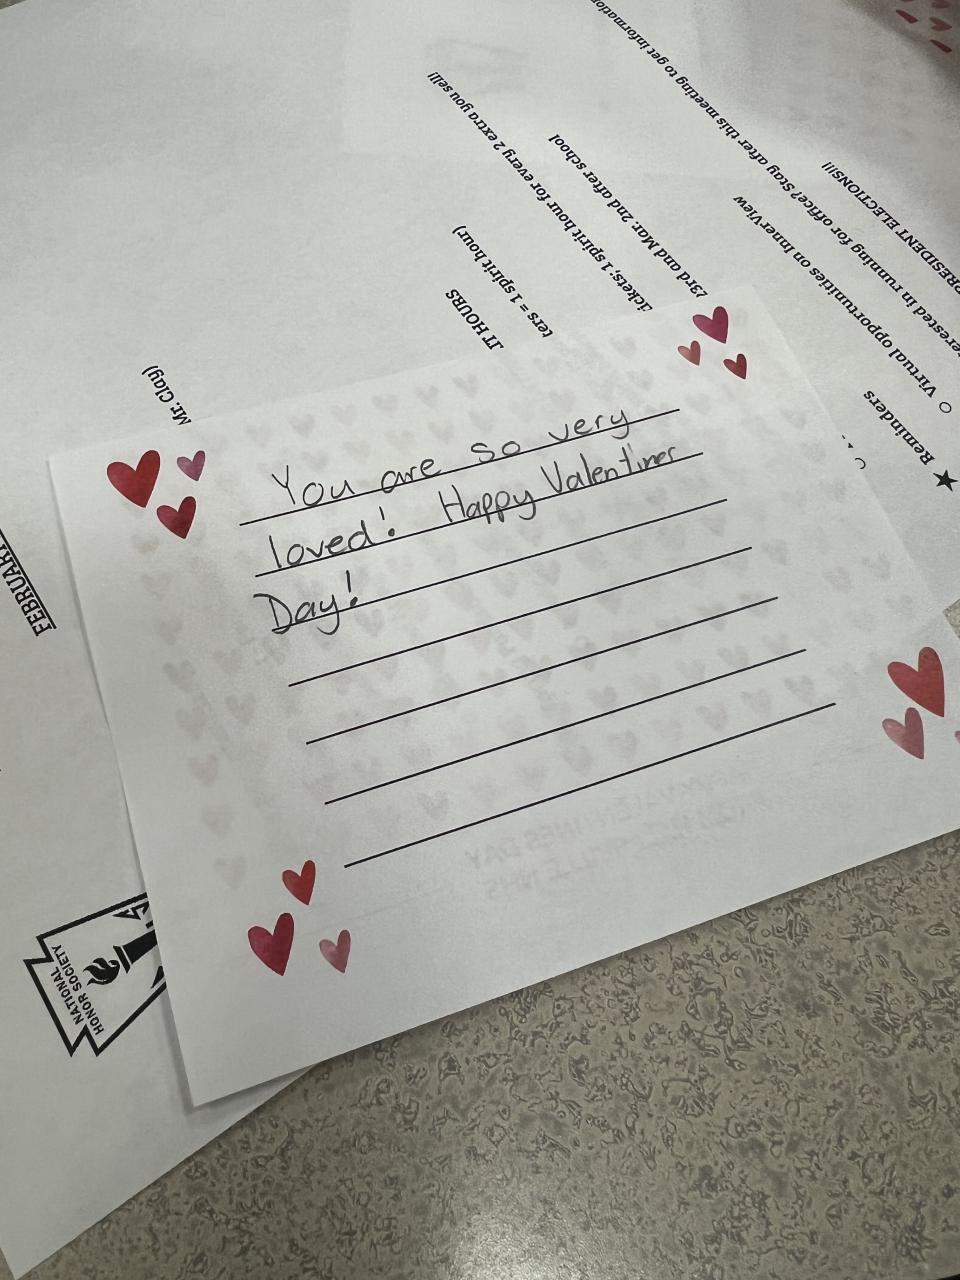 You are so very
loved! Happy Valentines
Day!
Mr. Clay)
IT HOURS
ters = 1 spirit hour)
ickets; 1 spirit hour for every 2 extra you sell!
23rd and Mar. 2nd after school
PRESIDENT ELECTIONS!!!
erested in running for office? Stay after this meeting to get information
○ Virtual opportunities on InnerView
★ Reminders
NATIONAL
HONOR SOCIETY